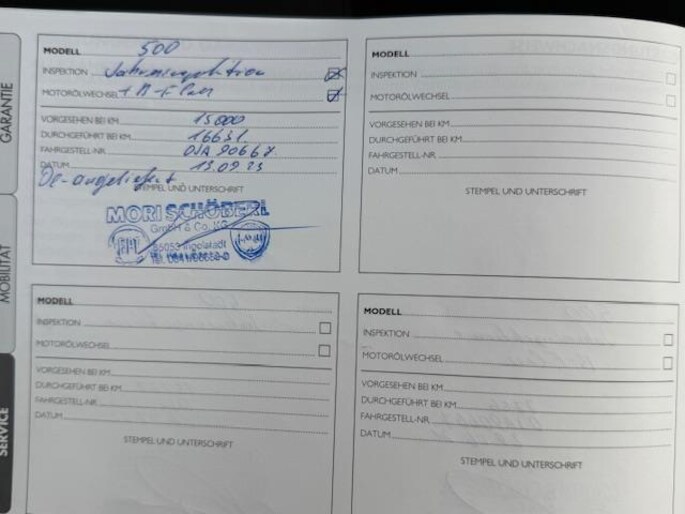 GARANTIE
MOBILITÄT
SERVICE
MODELL 500
INSPEKTION Jahresinspektion
MOTORÖLWECHSEL + M-Filter
VORGESEHEN BEI KM 15000
DURCHGEFÜHRT BEI KM 16631
FAHRGESTELL-NR. 0JA90667
DATUM 13.09.23
Öl angeliefert
STEMPEL UND UNTERSCHRIFT
MORI SCHÖBERL
GmbH & Co. KG
Ingolstadt
MODELL
INSPEKTION
MOTORÖLWECHSEL
VORGESEHEN BEI KM
DURCHGEFÜHRT BEI KM
FAHRGESTELL-NR.
DATUM
STEMPEL UND UNTERSCHRIFT
MODELL
INSPEKTION
MOTORÖLWECHSEL
VORGESEHEN BEI KM
DURCHGEFÜHRT BEI KM
FAHRGESTELL-NR.
DATUM
STEMPEL UND UNTERSCHRIFT
MODELL
INSPEKTION
MOTORÖLWECHSEL
VORGESEHEN BEI KM
DURCHGEFÜHRT BEI KM
FAHRGESTELL-NR.
DATUM
STEMPEL UND UNTERSCHRIFT